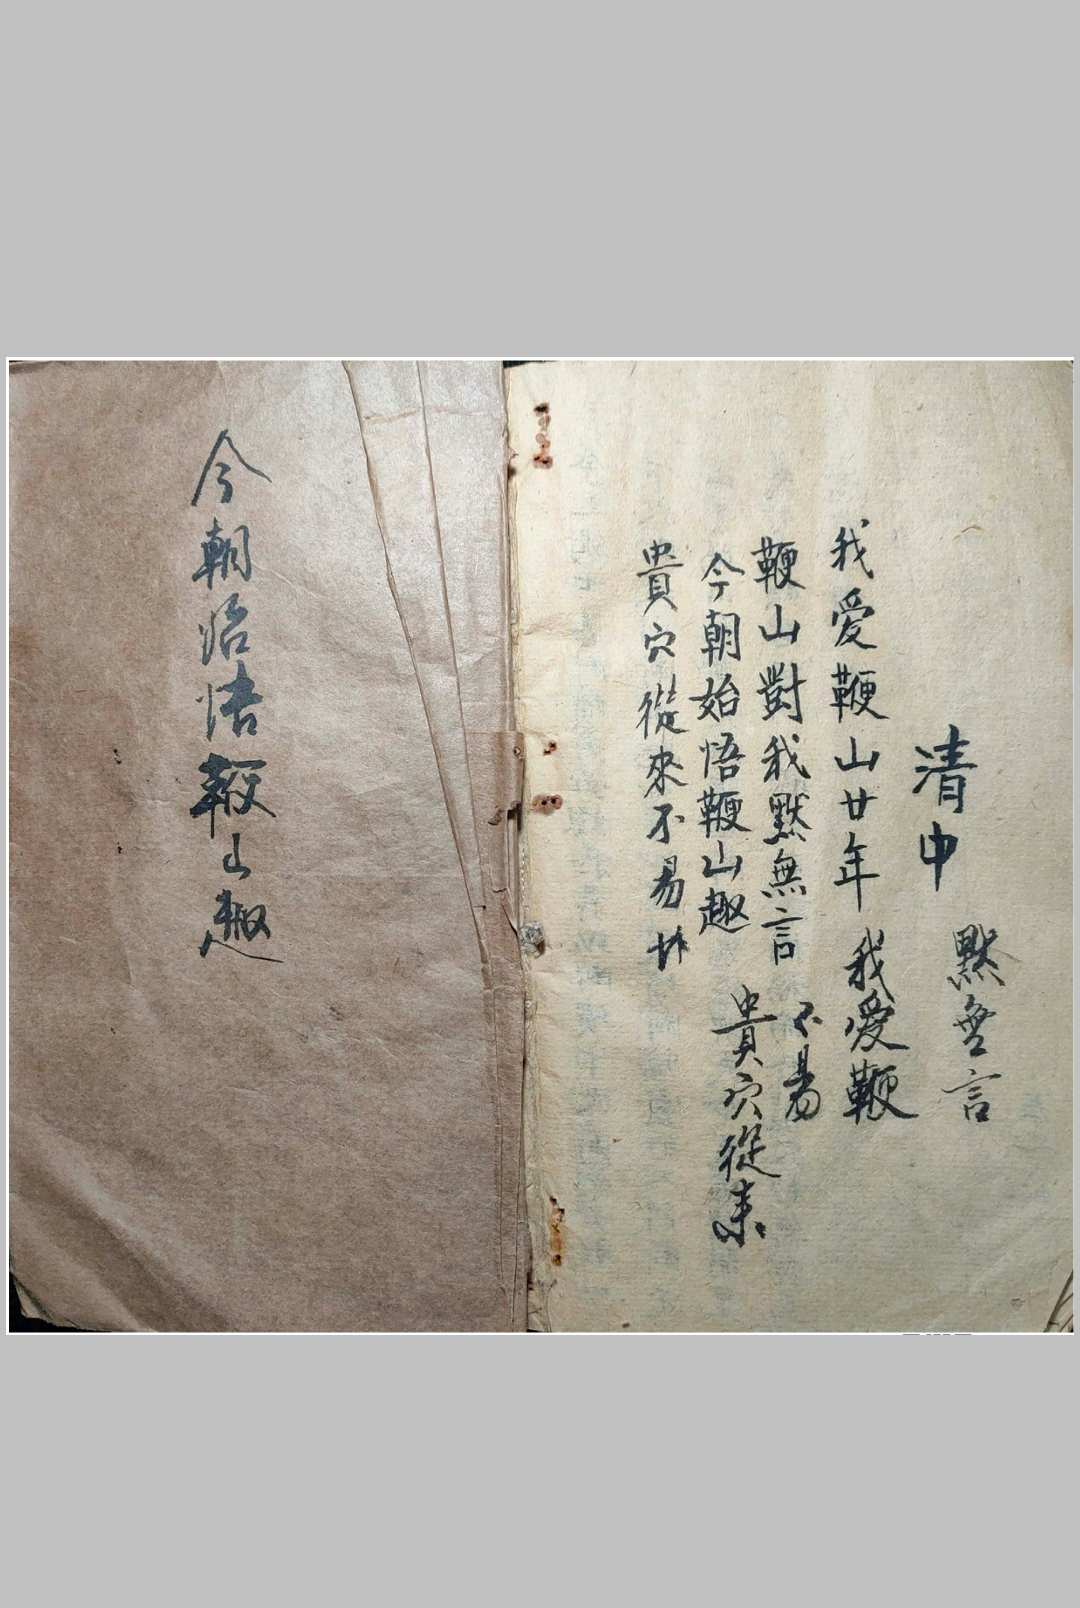 默無言
清中
我愛鞭山廿年
我愛鞭
鞭山對我默無言
不易
今朝始悟鞭山趣
貴穴從来
貴穴從來不易
今朝悟鞭山趣